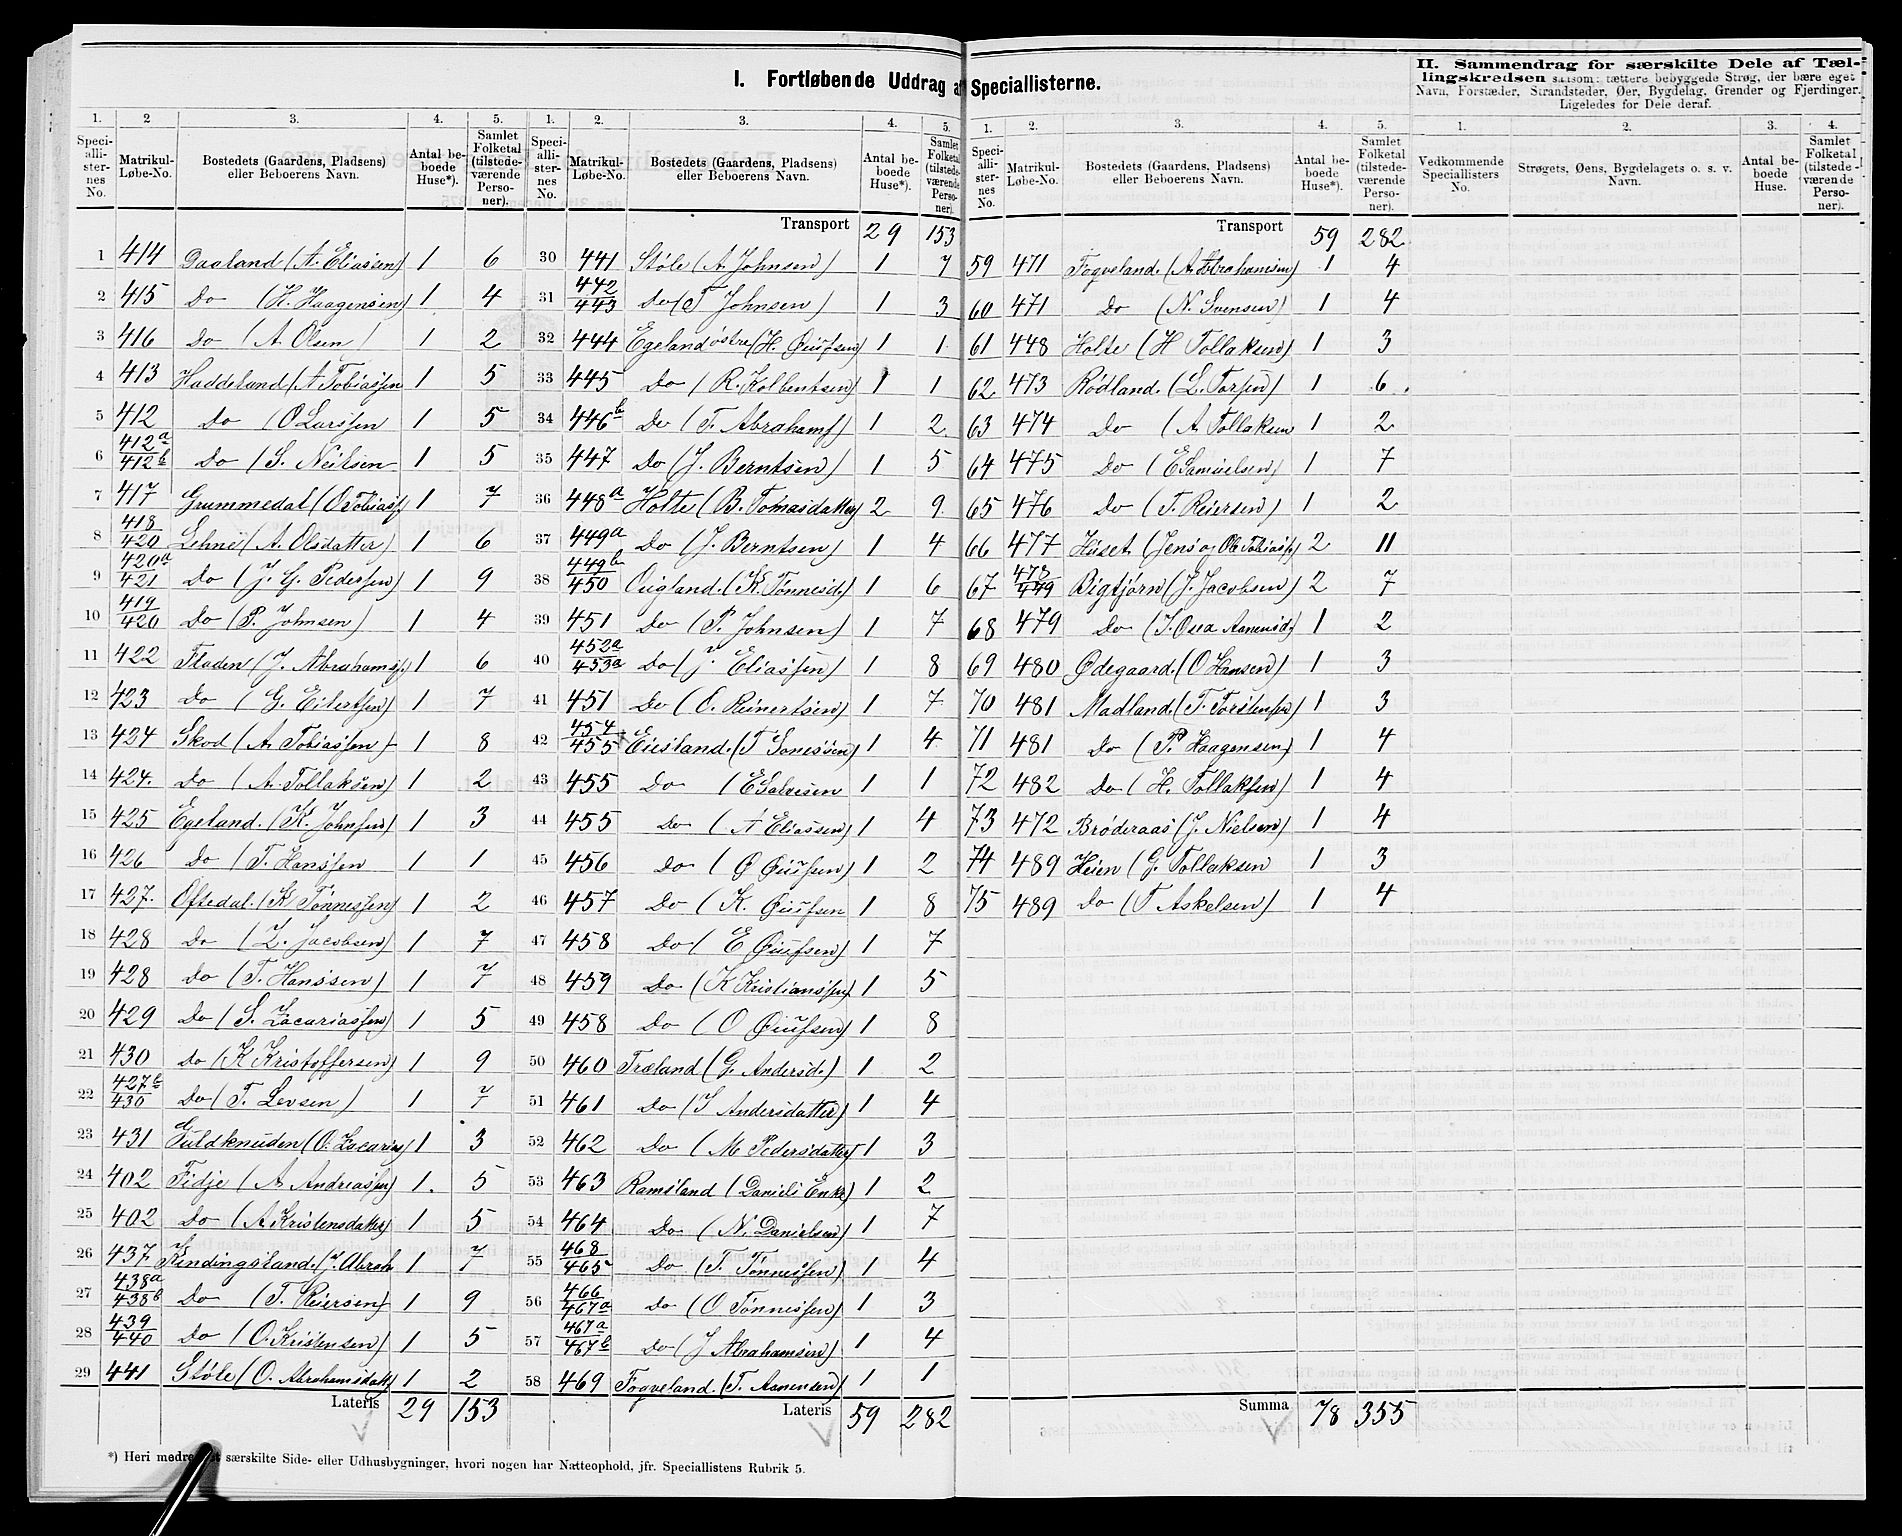 I. Fortløbende Uddrag af Speciallisterne.
II. Sammendrag for særskilte Dele af Tællingskredsen saasom: tættere bebyggede Strøg, der bære eget
Navn, Forstæder, Strandsteder, Øer, Bygdelag, Grender og Fjerdinger.
Ligeledes for Dele deraf.
1. 2. 3. 4. 5. 1. 2. 3. 4. 5. 1. 2. 3. 4. 5. 1. 2. 3. 4.
Speciallisternes No. Matrikul-Løbe-No. Bostedets (Gaardens, Pladsens) eller Beboerens Navn. Antal beboede Huse*). Samlet Folketal (tilstedeværende Personer).
Speciallisternes No. Matrikul-Løbe-No. Bostedets (Gaardens, Pladsens) eller Beboerens Navn. Antal beboede Huse*). Samlet Folketal (tilstedeværende Personer).
Speciallisternes No. Matrikul-Løbe-No. Bostedets (Gaardens, Pladsens) eller Beboerens Navn. Antal beboede Huse*). Samlet Folketal (tilstedeværende Personer).
Vedkommende Speciallisters No. Strøgets, Øens, Bygdelagets o. s. v. Navn. Antal beboede Huse. Samlet Folketal (tilstedeværende Personer).
1 414 Dasland (A. Eliassen) 1 6
2 415 Do (H. Haagensen) 1 4
3 416 Do (A. Olsen) 1 2
4 413 Haddeland (A Tobiassen 1 5
5 412 Do (O Larssen 1 5
6 412a/412b Do (S. Neilsen 1 5
7 417 Grummedal (O Tobiass.) 1 7
8 418/420 Lehne (A. Olsdatter) 1 6
9 420a/421 Do (J. G. Pedersen) 1 9
10 419/420 Do (P. Johnsen) 1 4
11 422 Fladen (J. Abrahams.) 1 6
12 423 Do (G. Eilertsen) 1 7
13 424 Skod (A. Tobiassen) 1 8
14 424. Do (A. Tollaksen) 1 2
15 425 Egeland. (K. Johnsen) 1 3
16 426 Do (T. Hanssen 1 1
17 427. Oftedal. (K Tönnessen) 1 2
18 428 Do (Z. Jacobsen) 1 7
19 428 Do (T. Hanssen) 1 7
20 429 Do (S. Zacariassen) 1 5
21 430 Do (K Kristoffersen) 1 9
22 427b/430 Do (T. Levsen) 1 7
23 431 Guldknuden (O. Zacarias) 1 3
24 402 Fidje (A Andreassen) 1. 5
25 402 Do (A Kristensdatter) 1 5
26 437 Kindingsland. (J. Abrah 1 7
27 438a/438b Do (T. Reiersen) 1 9
28 439/440 Do (O. Kristensen) 1 5
29 441 Støle (O. Abrahamsdatt) 1 2
Lateris 29 153
Transport 29 153
30 441 Støle (A. Johnsen) 1 7
31 442/443 Do (T Johnsen) 1 3
32 444 Egeland østre (H. Øiufsen) 1 1
33 445 Do (R. Kolbentsen) 1 1
34 446b Do (T. Abrahams) 1 2
35 447 Do (J. Berntsen) 1 5
36 448a Holte (B. Tomasdatter) 2 9
37 449a Do (J. Berntsen) 1 4
38 449b/450 Ougland. (K. Tønnesd.) 1 6
39 451 Do (P. Johnsen) 1 7
40 452a/453a Do (J. Eliassen) 1 8
41 451 Do (O. Reinertsen) 1 7
42 454/455 Eiesland. (T Tonessen) 1 4
43 455 Do (E Salvesen 1 1
44 455 Do (A Eliassen) 1 4
45 456 Do (Ø Øiufsen) 1 2
46 457 Do (K. Øiufsen 1 8
47 458 Do (E Øiufsen) 1 7
48 459 Do (K Kristianssen) 1 5
49 458 Do (O Øiufsen) 1 8
50 460 Træland (G. Andersd.) 1 2
51 461 Do (I Andersdatter) 1 4
52 462 Do (M Pedersdatter) 1 3
53 463 Ramsland (Daniels Enke) 1 2
54 464 Do (N. Danielsen) 1 7
55 468/465 Do (T. Tönnessen) 1 4
56 466/467a Do (O Tönnessen) 1 3
57 467a/467b Do (J Abrahamsen) 1 4
58 469 Fogveland. (T. Aanensen) 1 1
Lateris 59 282
Transport 59 282
59 471 Fogveland. (A Abrahamsen) 1 4
60 471 Do (N. Svensen) 1 4
61 448 Holte (H Tollaksen) 1 3
62 473 Rödland. (L. Torsen) 1 6.
63 474 Do (A. Tollaksen 1 2
64 475 Do (E Samuelsen) 1 7
65 476 Do (T. Reiersen) 1 2
66 477 Huset (Jens og Ole Tobiass) 2 11
67 478/479 Bigtjörn (J. Jacobsen) 2 7
68 479 Do (T. Osea Aanensd.) 1 2
69 480 Ødegaard. (O Hansen) 1 3
70 481 Madland. (T. Torstensen) 1 3
71 481 Do (P. Haagensen) 1 4
72 482 Do (H. Tollaksen) 1 4
73 472 Bröderaas (J. Nielsen) 1 4
74 489 Heien (G. Tollaksen 1 3
75 489 Do (T Askelsen) 1 4
Summa 78 355
*) Heri medregnet særskilte Side- eller Udhusbygninger, hvori nogen har Natteophold, jfr. Speciallistens Rubrik 5.